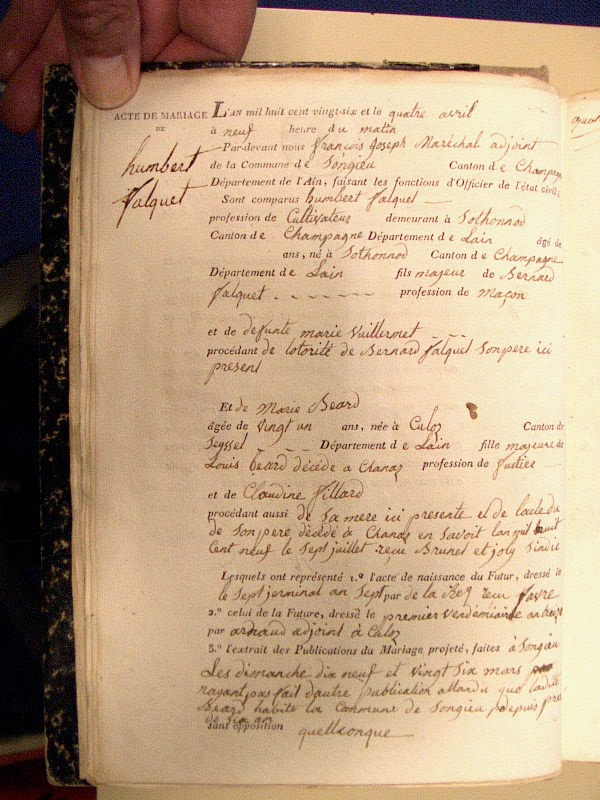 ACTE DE MARIAGE L'AN mil huit cent vingt-six et le quatre avril
DE
à neuf heure du matin
humbert
falquet
Par-devant nous françois Joseph Maréchal adjoint
de la Commune de Songieu Canton de Champagne
Département de l'Ain, faisant les fonctions d'Officier de l'état civil,
Sont comparus humbert falquet
profession de Cultivateur demeurant à Sothonnod
Canton de Champagne Département de Lain âgé de
ans, né à Sothonnod Canton de Champagne
Département de Lain fils majeur de Bernard
falquet profession de maçon
et de defunte marie Vuillermet
procédant de lotorité de Bernard falquet son pere ici
present
Et de Marie Beard
âgée de vingt un ans, née à Culoz Canton de
Seyssel Département de Lain fille majeure de
Louis beard décédé a Chanaz profession de
et de Claudine fillard
procédant aussi de sa mere ici presente et de lacte du
de son pere décédé à Chanaz en Savoit lan mil huit
Cent neuf le Sept juillet reçu Brunet et joly Sindic
Lesquels ont représenté 1.º l'acte de naissance du Futur, dressé le
le Sept jerminal an Sept par de la reçu favre
2.º celui de la Future, dressé le premier vendemiaire an treize
par arnaud adjoint à Culoz
3.º l'extrait des Publications du Mariage projeté, faites à Songieu
Les dimanche dix neuf et vingt Six mars
nayant pas fait dautre publication attandu que ladite
Beard habite la Commune de Songieu depuis pres
de six an
sans opposition quellconque